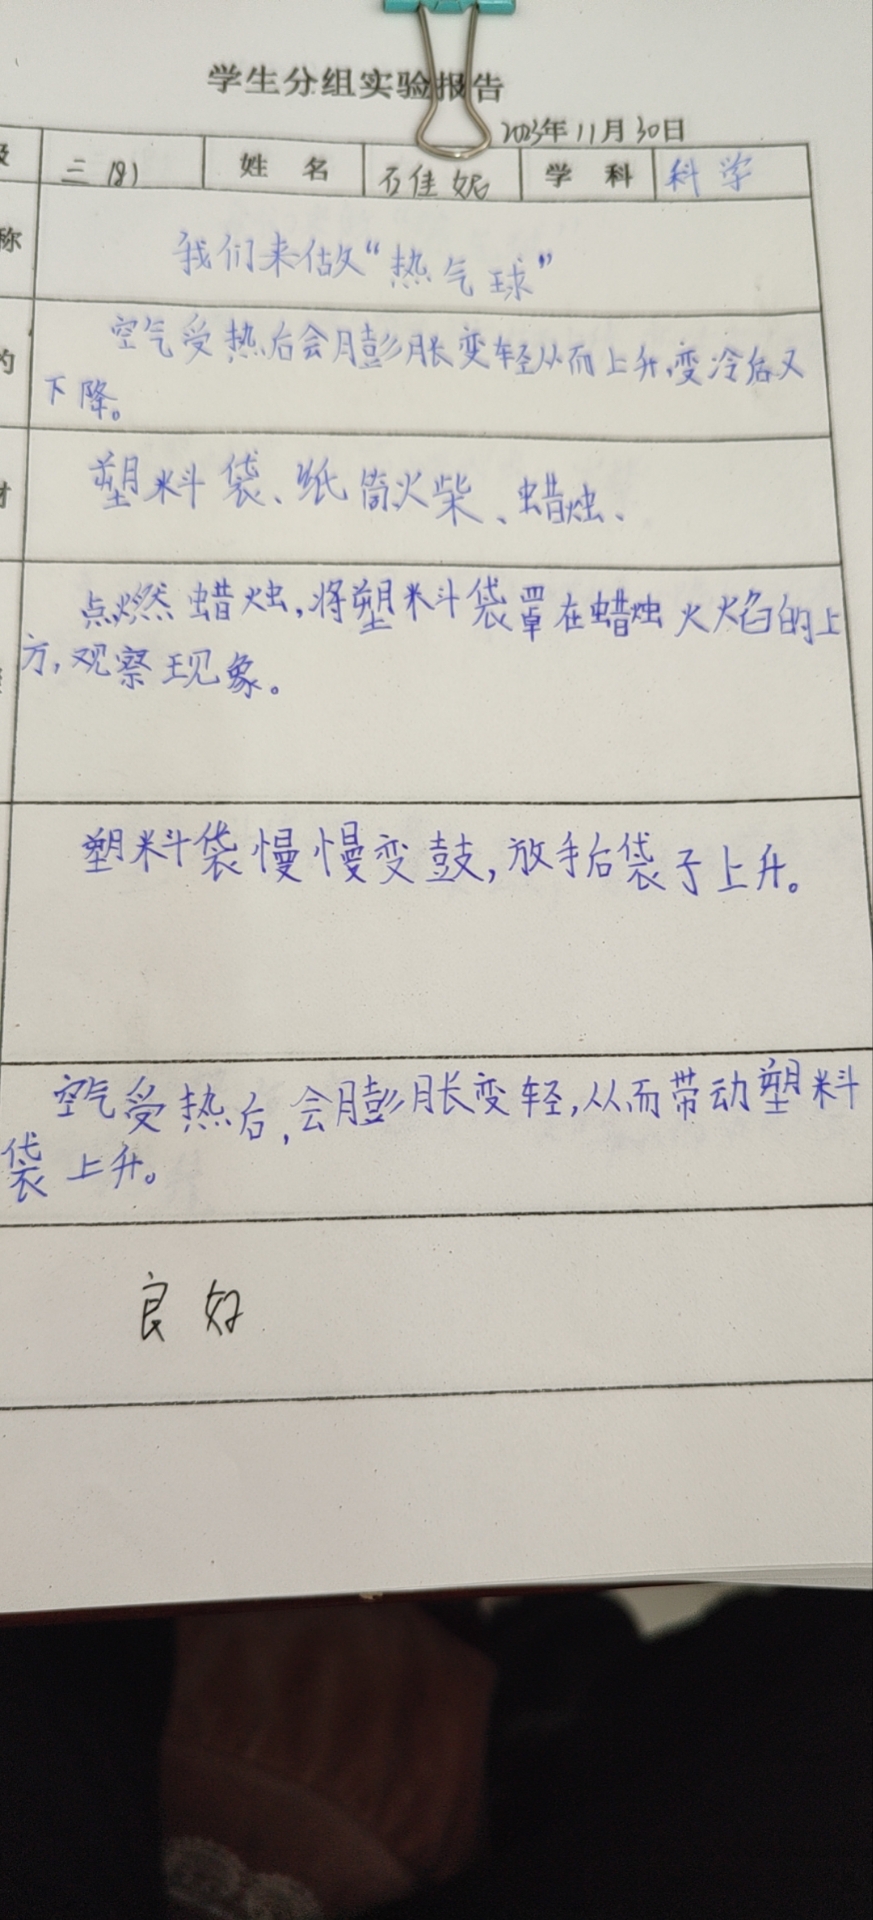 学生分组实验报告
2023年11月30日
级 三(8) 姓 名 石佳妮 学 科 科学
称 我们来做“热气球”
的 空气受热后会膨胀变轻从而上升,变冷后又
下降。
材 塑料袋、纸筒火柴、蜡烛、
点燃蜡烛,将塑料袋罩在蜡烛火焰的上
方,观察现象。
塑料袋慢慢变鼓,放手后袋子上升。
空气受热后,会膨胀变轻,从而带动塑料
袋上升。
良好